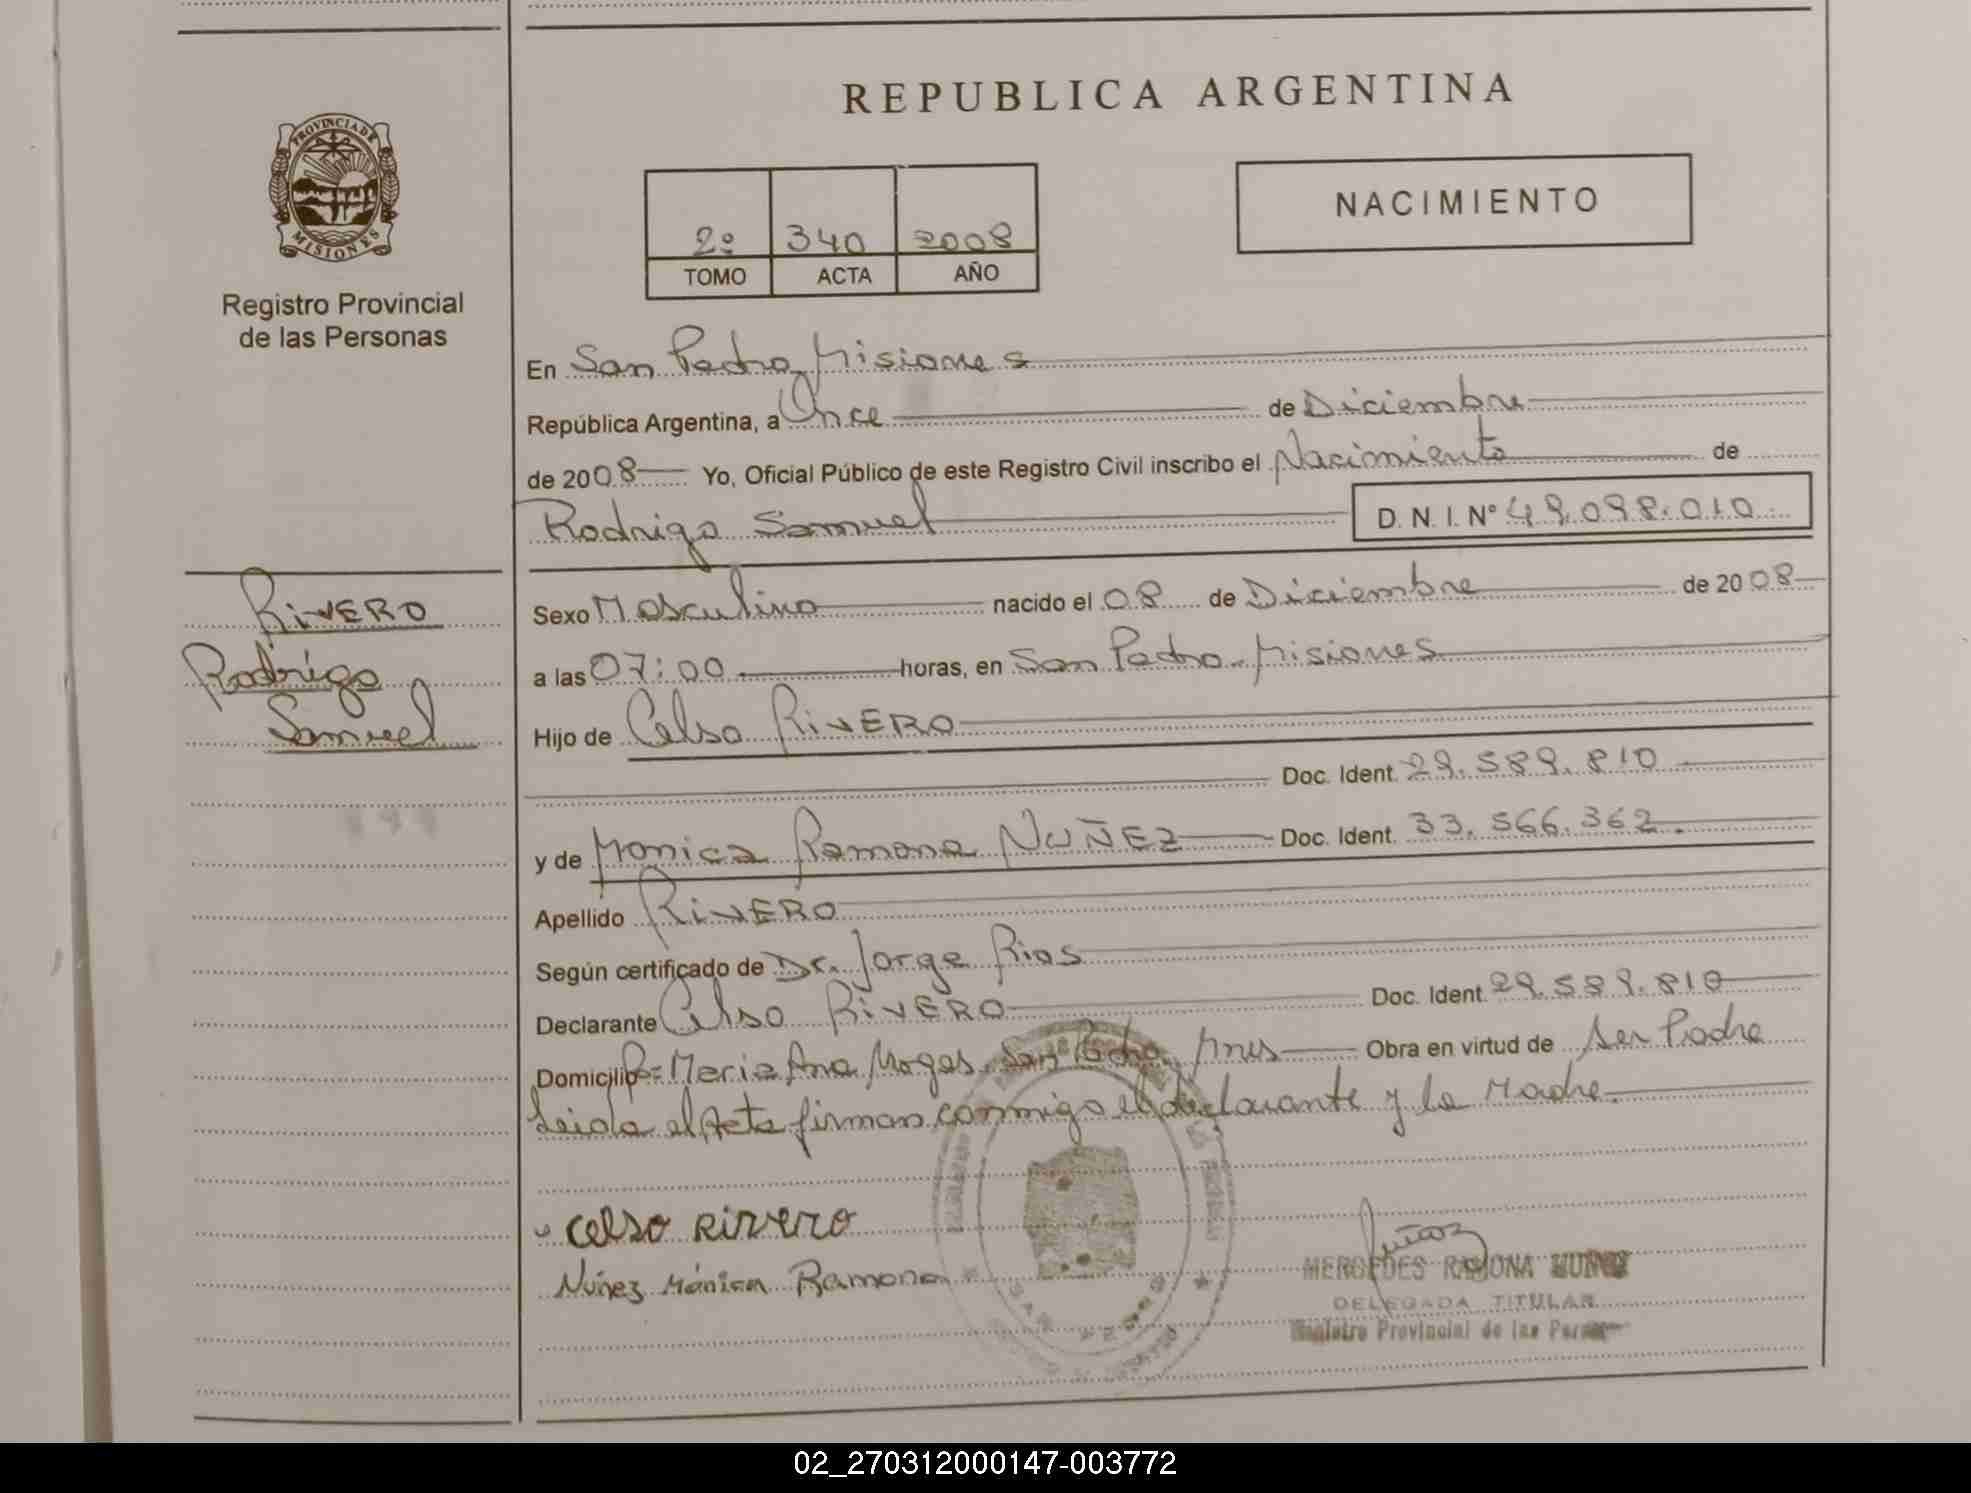 REPUBLICA ARGENTINA
PROVINCIA DE
MISIONES
Registro Provincial
de las Personas
2º 340 2008
TOMO ACTA AÑO
NACIMIENTO
En San Pedro, Misiones
República Argentina, a Once de Diciembre
de 2008 Yo, Oficial Público de este Registro Civil inscribo el Nacimiento de
Rodrigo Samuel D. N. I. Nº 49.098.010
RIVERO
Rodrigo
Samuel
Sexo Masculino nacido el 08 de Diciembre de 2008
a las 07:00 horas, en San Pedro. Misiones
Hijo de Celso RIVERO
Doc. Ident. 29.589.810
y de Monica Ramona NUÑEZ Doc. Ident. 33.566.362.
Apellido RIVERO
Según certificado de Dr. Jorge Rios
Declarante Celso RIVERO Doc. Ident. 29.589.810
Domicilio Maria Ana Mogas San Pedro, Mnes Obra en virtud de ser Padre
Leida el Acta firman conmigo el declarante y la Madre.
Celso Rivero
Nuñez Mónica Ramona
MERCEDES RAMONA
DELEGADA TITULAR
Registro Provincial de las
SAN PEDRO
02_270312000147-003772